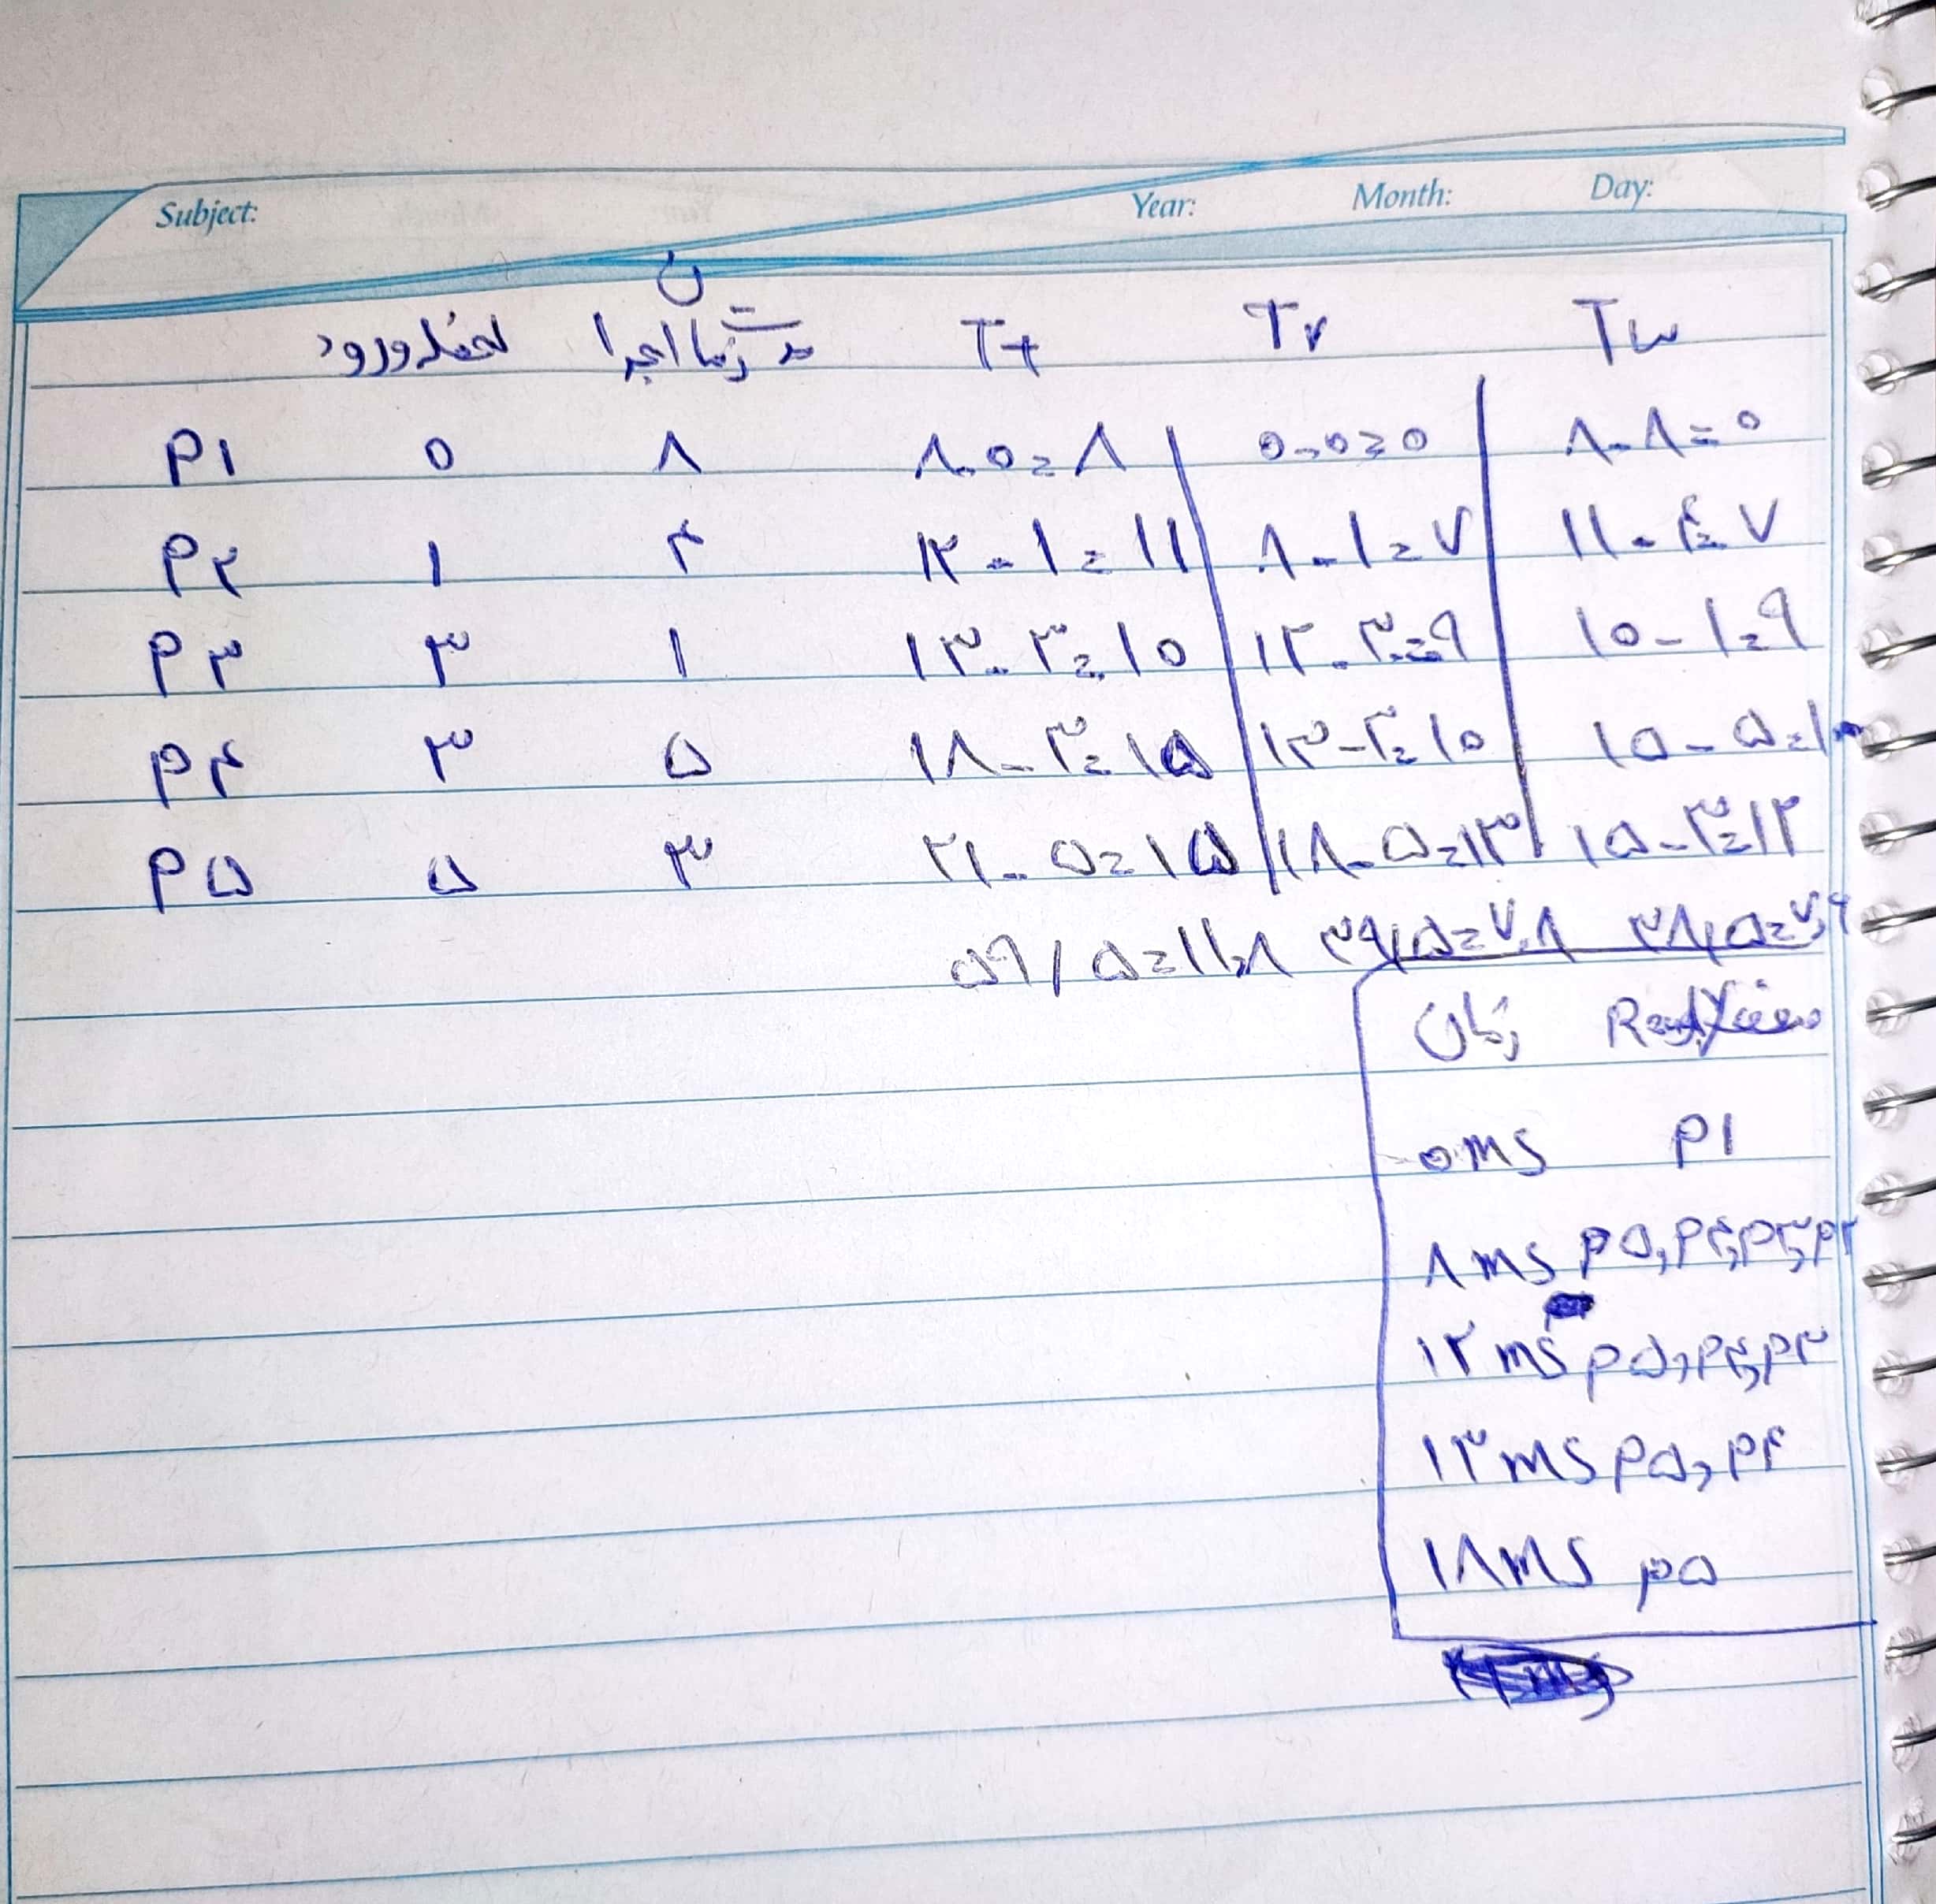 Subject: Year: Month: Day:
لحظه ورود مدت زمان اجرا Tt Tr Tw
P۱ ۰ ۸ ۸-۰=۸ ۰-۰=۰ ۸-۸=۰
P۲ ۱ ۴ ۱۲-۱=۱۱ ۸-۱=۷ ۱۱-۴=۷
P۳ ۳ ۱ ۱۳-۳=۱۰ ۱۲-۳=۹ ۱۰-۱=۹
P۴ ۳ ۵ ۱۸-۳=۱۵ ۱۳-۳=۱۰ ۱۵-۵=۱۰
P۵ ۵ ۳ ۲۱-۵=۱۵ ۱۸-۵=۱۳ ۱۵-۳=۱۲
۵۹/۵=۱۱,۸ ۳۹/۵=۷,۸ ۳۸/۵=۷,۶
زمان
۰ms P۱
۸ms P۵,P۴,P۳,P۲
۱۲ms P۵,P۴,P۳
۱۳ms P۵,P۴
۱۸ms P۵